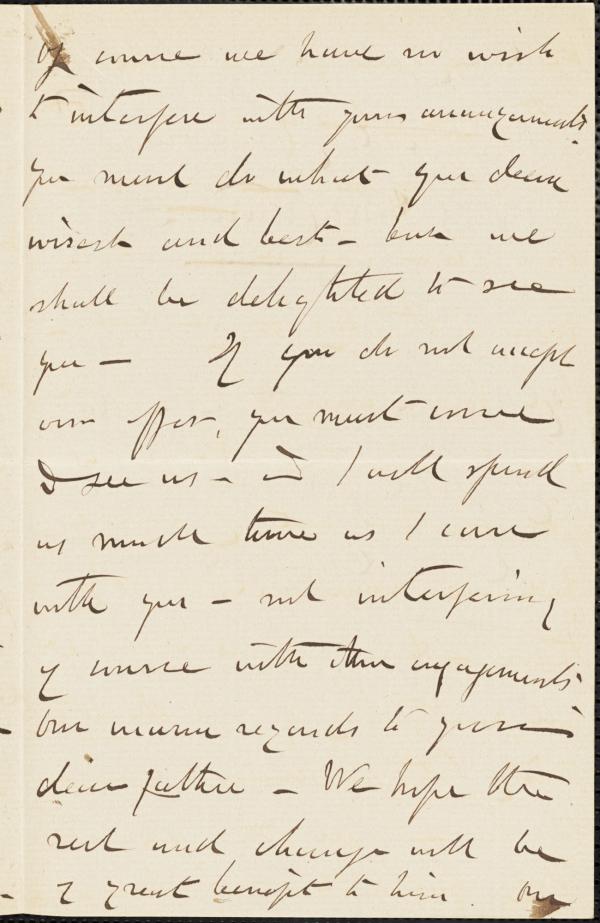 of course we have no wish
to interfere with your arrangements.
you must do what you deem
wisest and best – but we
shall be delighted to see
you – If you do not accept
our offer, you must come
& see us – and I will spend
as much time as I can
with you – not interfering
of course with other engagements
Our warm regards to your
dear father – We hope the
rest and change will be
of great benefit to him. Our